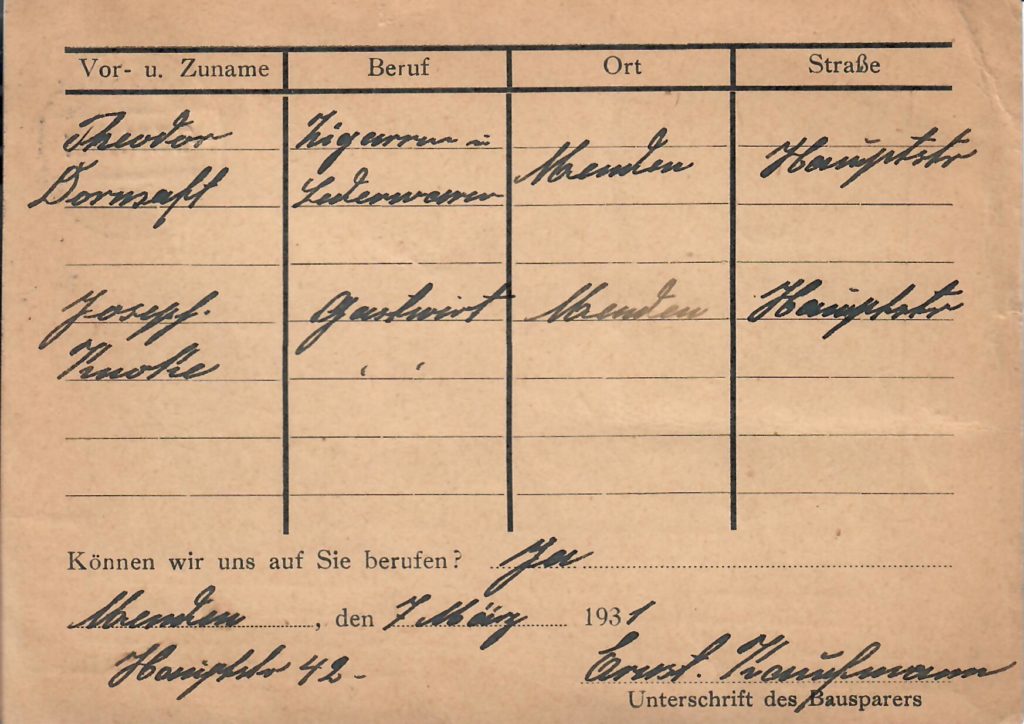 Vor- u. Zuname Beruf Ort Straße
Theodor Zigarren u Menden Hauptstr
Dornsaft Lederwaren
Joseph. Gastwirt Menden Hauptstr
Knoke " "
Können wir uns auf Sie berufen? Ja
Menden, den 7 März 1931
Hauptstr 42-
Ernst. Kaufmann
Unterschrift des Bausparers